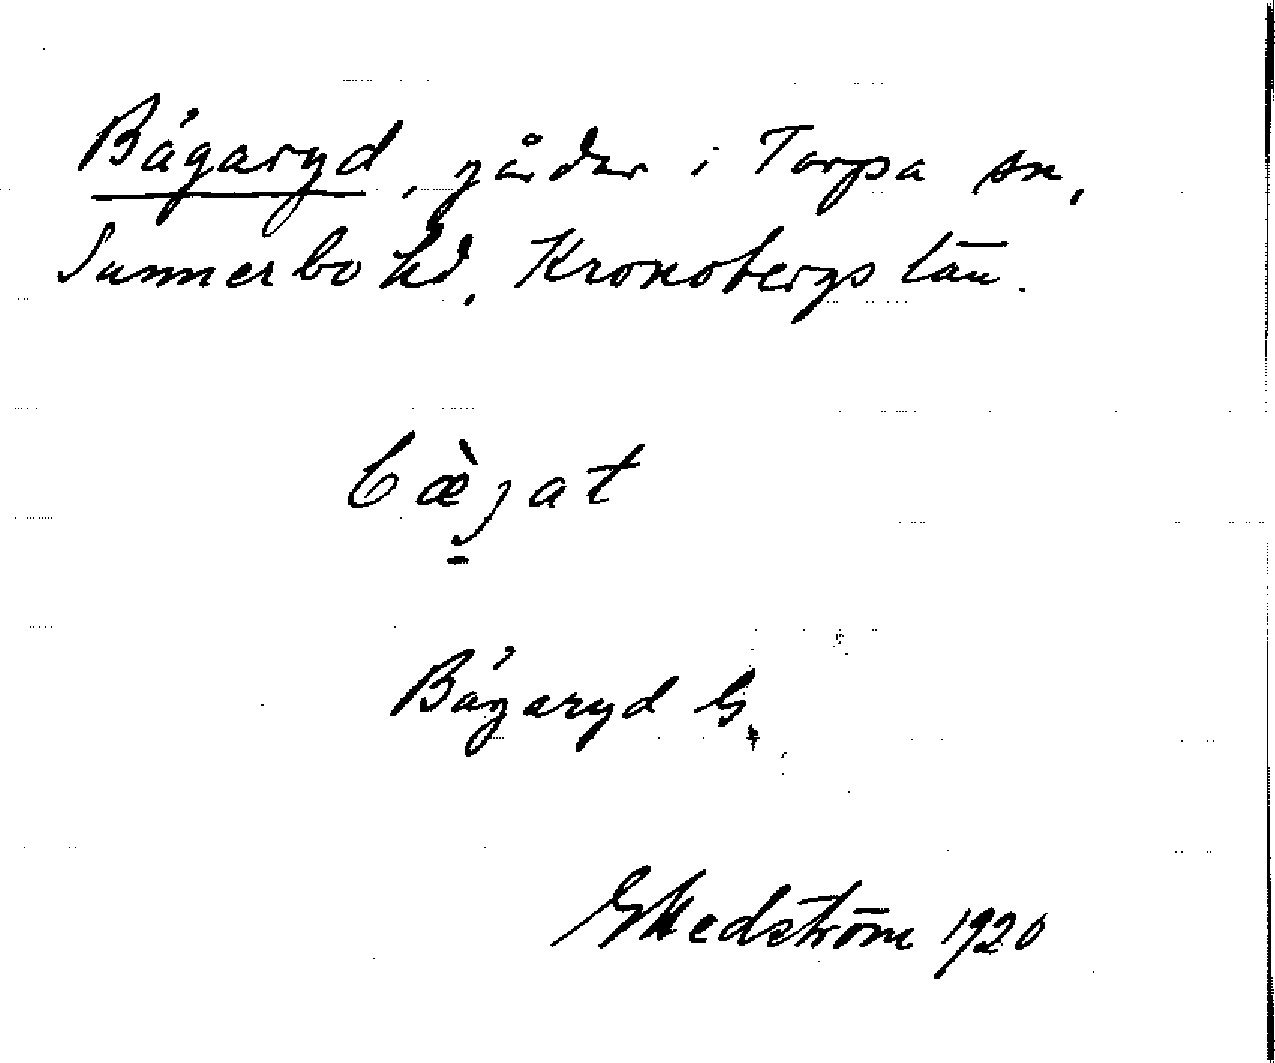 Bågaryd, gårdar i Torpa sn,
Sunnerbo hd, Kronobergs län.
bæ̀jat
Bågaryd G.
G Hedström 1920